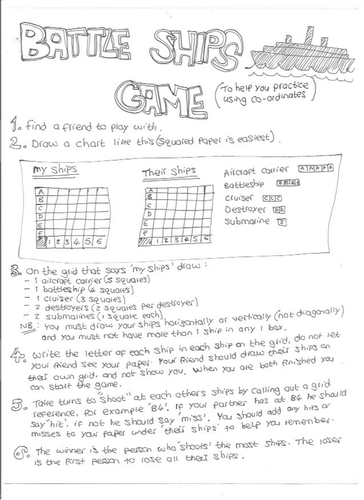 BATTLE SHIPS
GAME
(To help you practice
using co-ordinates)
1. Find a friend to play with.
2. Draw a chart like this (squared paper is easiest).
my ships
Their ships
Aircraft carrier A A A A A
Battleship B B B B
Cruiser C C C
Destroyer D D
Submarine S
A
B
C
D
E
F
1 2 3 4 5 6
A
B
C
D
E
F
1 2 3 4 5 6
3. On the grid that says 'my ships' draw:
- 1 aircraft carrier (5 squares)
- 1 battleship (4 squares)
- 1 cruiser (3 squares)
- 2 destroyers (2 squares per destroyer)
- 2 submarines (1 square each)
NB: You must draw your ships horizontally or vertically (not diagonally)
and you must not have more than 1 ship in any 1 box.
4. Write the letter of each ship in each ship on the grid, do not let
your friend see your paper. Your friend should draw their ships on
their own grid, and not show you. When you are both finished you
can start the game.
5. Take turns to "shoot" at each others ships by calling out a grid
reference. For example 'B6'. If your partner has at B6 he should
say 'hit', if not he should say 'miss'. You should add any hits or
misses to your paper under 'their ships' to help you remember.
6. The winner is the person who 'shoots' the most ships. The loser
is the first person to lose all their ships.